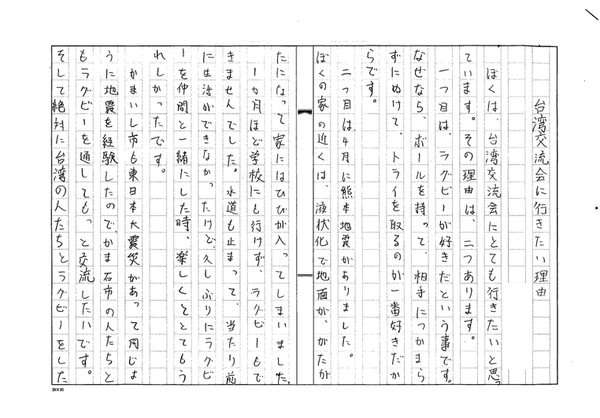 台湾交流会に行きたい理由
ぼくは、台湾交流会にとても行きたいと思っ
ています。その理由は、二つあります。
一つ目は、ラグビーが好きだという事です。
なぜなら、ボールを持って、相手につかまら
ずにぬけて、トライを取るのが一番好きだか
らです。
二つ目は4月に熊本地震がありました。
ぼくの家の近くは、液状化で地面が、がたが
たになって家にはひびが入ってしまいました。
1カ月ほど学校にも行けず、ラグビーもで
きませんでした。水道も止まって、当たり前
に生活ができなかったけど、久しぶりにラグビ
ーを仲間と一緒にした時、楽しくてとてもう
れしかったです。
かまいし市も東日本大震災があって同じよ
うに地震を経験したので、かま石市の人たちと
もラグビーを通してもっと交流したいです。
そして絶対に台湾の人たちとラグビーをした
20×20